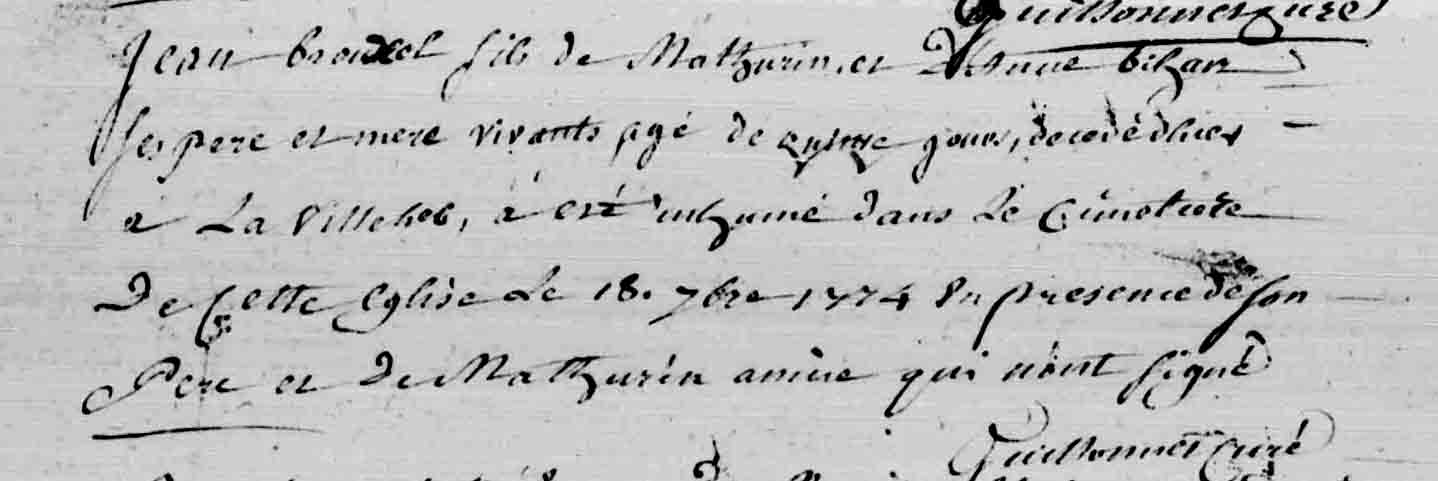 Guillonnet curé
Jean fils de Mathurin, et D'anne bihan
ses pere et mere vivants agé de quinze jours, decedé d'hier
a La Ville, a eté inhumé dans le Cimetiere
De Cette Eglise Le 18. 7bre 1774 En presence de son
Pere et De Mathurin qui n'ont signé
Guillonnet curé